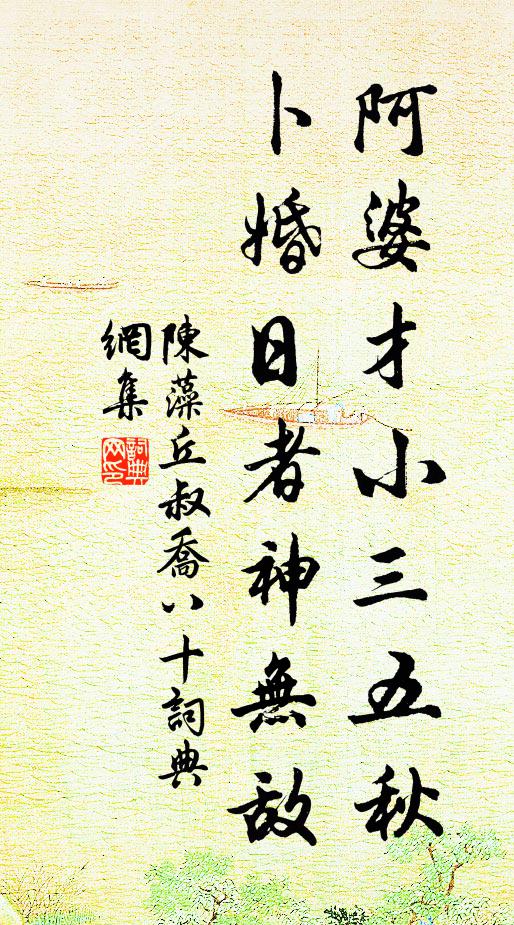 阿婆才小三五秋
卜婚日者神無敵
陳藻丘叔喬八十詞典
網集
詞典網印